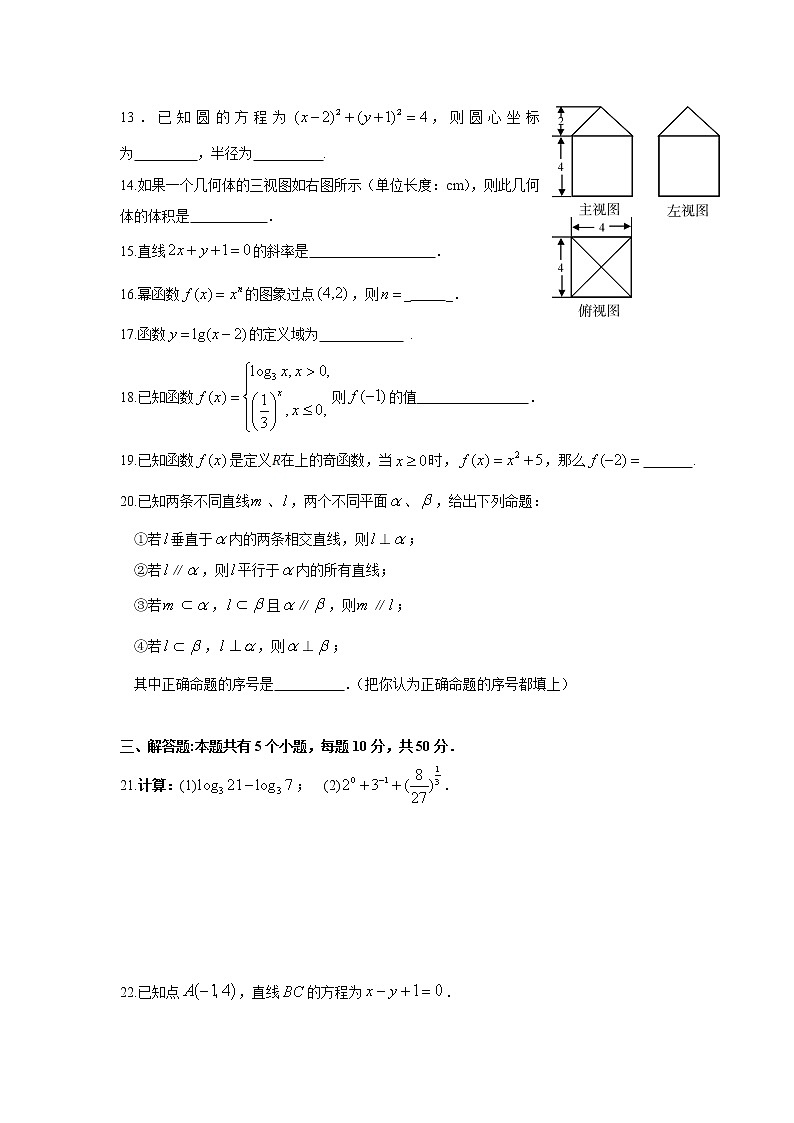 13．已知圆的方程为 (x−2)²+(y+1)²=4，则圆心坐标
为_________，半径为__________.
14.如果一个几何体的三视图如右图所示（单位长度：cm），则此几何
体的体积是___________．
15.直线2x+y+1=0的斜率是__________________．
16.幂函数 f(x)=xⁿ的图象过点(4,2)，则n=_ _____ _．
17.函数y=lg(x−2)的定义域为____________ ．
18.已知函数 f(x)={log₃ x, x>0, (1/3)^x, x≤0, 则 f(−1) 的值________________．
19.已知函数 f(x) 是定义R在上的奇函数，当 x≥0时，f(x)=x²+5，那么 f(−2)= _______.
20.已知两条不同直线m 、l，两个不同平面α、β，给出下列命题：
①若l垂直于α内的两条相交直线，则l⊥α；
②若l∥α，则l平行于α内的所有直线；
③若m⊂α，l⊂β且α∥β，则m∥l；
④若l⊂β，l⊥α，则α⊥β；
其中正确命题的序号是__________．（把你认为正确命题的序号都填上）
三、解答题:本题共有5个小题，每题10分，共50分．
21.计算：(1)log₃ 21−log₃ 7； (2)2⁰+3⁻¹+(8/27)^(1/3)．
22.已知点A(−1,4)，直线BC的方程为x−y+1=0．
2
4
主视图
左视图
4
4
俯视图